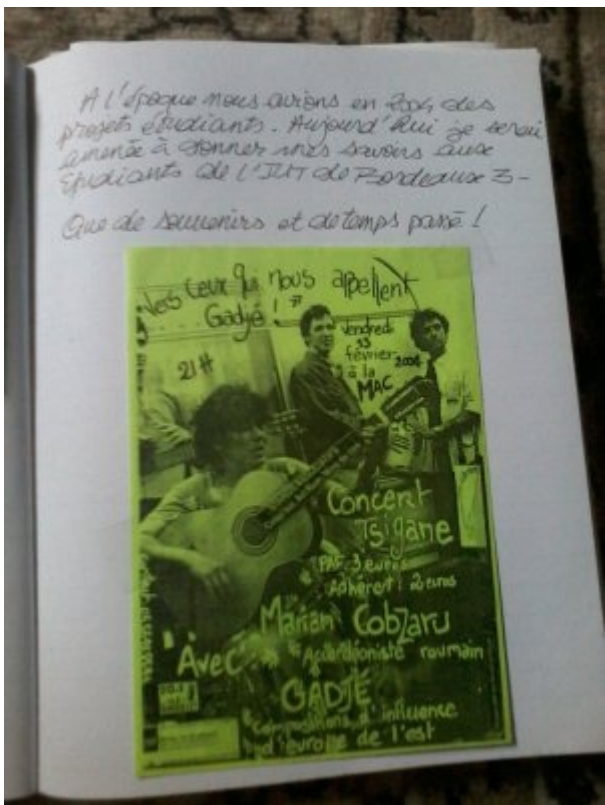 A l'époque nous avions en 2004 des
projets étudiants. Aujourd'hui je serai
amenée à donner mes savoirs aux
Etudiants de l'IUT de Bordeaux 3-
Que de souvenirs et de temps passé !
Vers ceux qui nous appellent
Gadjé !
Vendredi
13
février 2004
à la
MAC
21H
Concert
Tsigane
PAF: 3 euros
Adhérent : 2 euros
Avec
Marian Cobzaru
Accordéoniste roumain
GADJÉ
compositions d'influence
d'europe de l'est